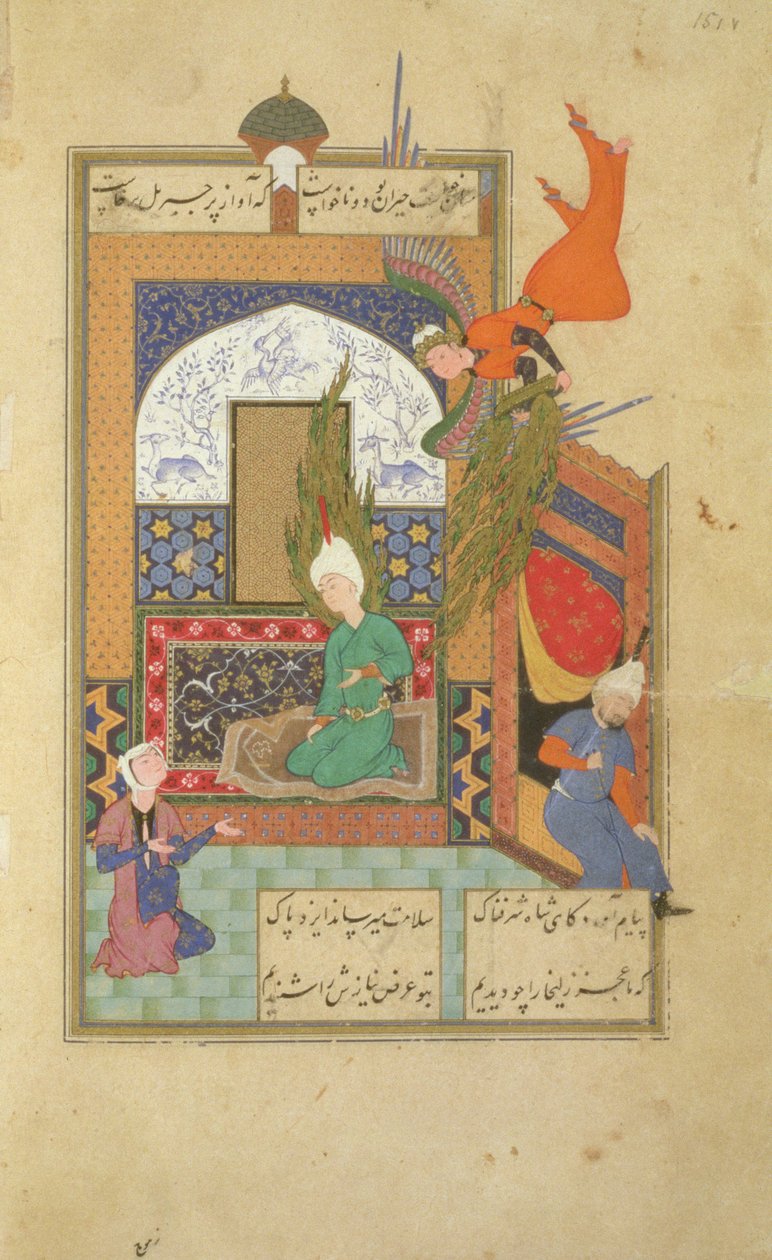 میان خواست حیران بود و ناخواست که آواز پر جبریل برخاست
پیام آورد کای شاه شرفناک سلامت میرساند ایزد پاک
که ما عجز زلیخا را چو دیدیم بتو عرض نیازش را شنیدیم